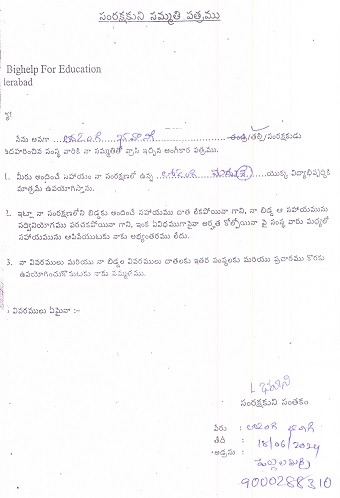 సంరక్షకుని సమ్మతి పత్రము
Bighelp For Education
lerabad
నేను అనగా ... లకావత్ ... తండ్రి/తల్లి/సంరక్షకుడు
ఉదహరించిన సంస్థ వారికి నా సమ్మతితో వ్రాసి ఇచ్చిన అంగీకార పత్రము.
1. మీరు అందించే సహాయం నా సంరక్షణలో ఉన్న ... యొక్క విద్యాభివృద్ధికి
మాత్రమే ఉపయోగిస్తాను.
2. ఇట్లా నా సంరక్షణలోని బిడ్డకు అందించే సహాయము దాత లేకపోయినా గాని, నా బిడ్డ ఆ సహాయమును
సద్వినియోగము పరచకపోయినా గాని, ఇంక ఏవిధముగానైనా అర్హత కోల్పోయినా పై సంస్థ వారు మధ్యలో
సహాయమును ఆపివేయుటకు నాకు అభ్యంతరము లేదు.
3. నా వివరములు మరియు నా బిడ్డల వివరములు దాతలకు ఇతర సంస్థలకు మరియు ప్రచారము కొరకు
ఉపయోగించుకొనుటకు నాకు సమ్మతము.
వివరములు ఏమైనా :-
సంరక్షకుని సంతకం
పేరు :
తేదీ : 18/06/2024
అడ్రసు :
9000288310